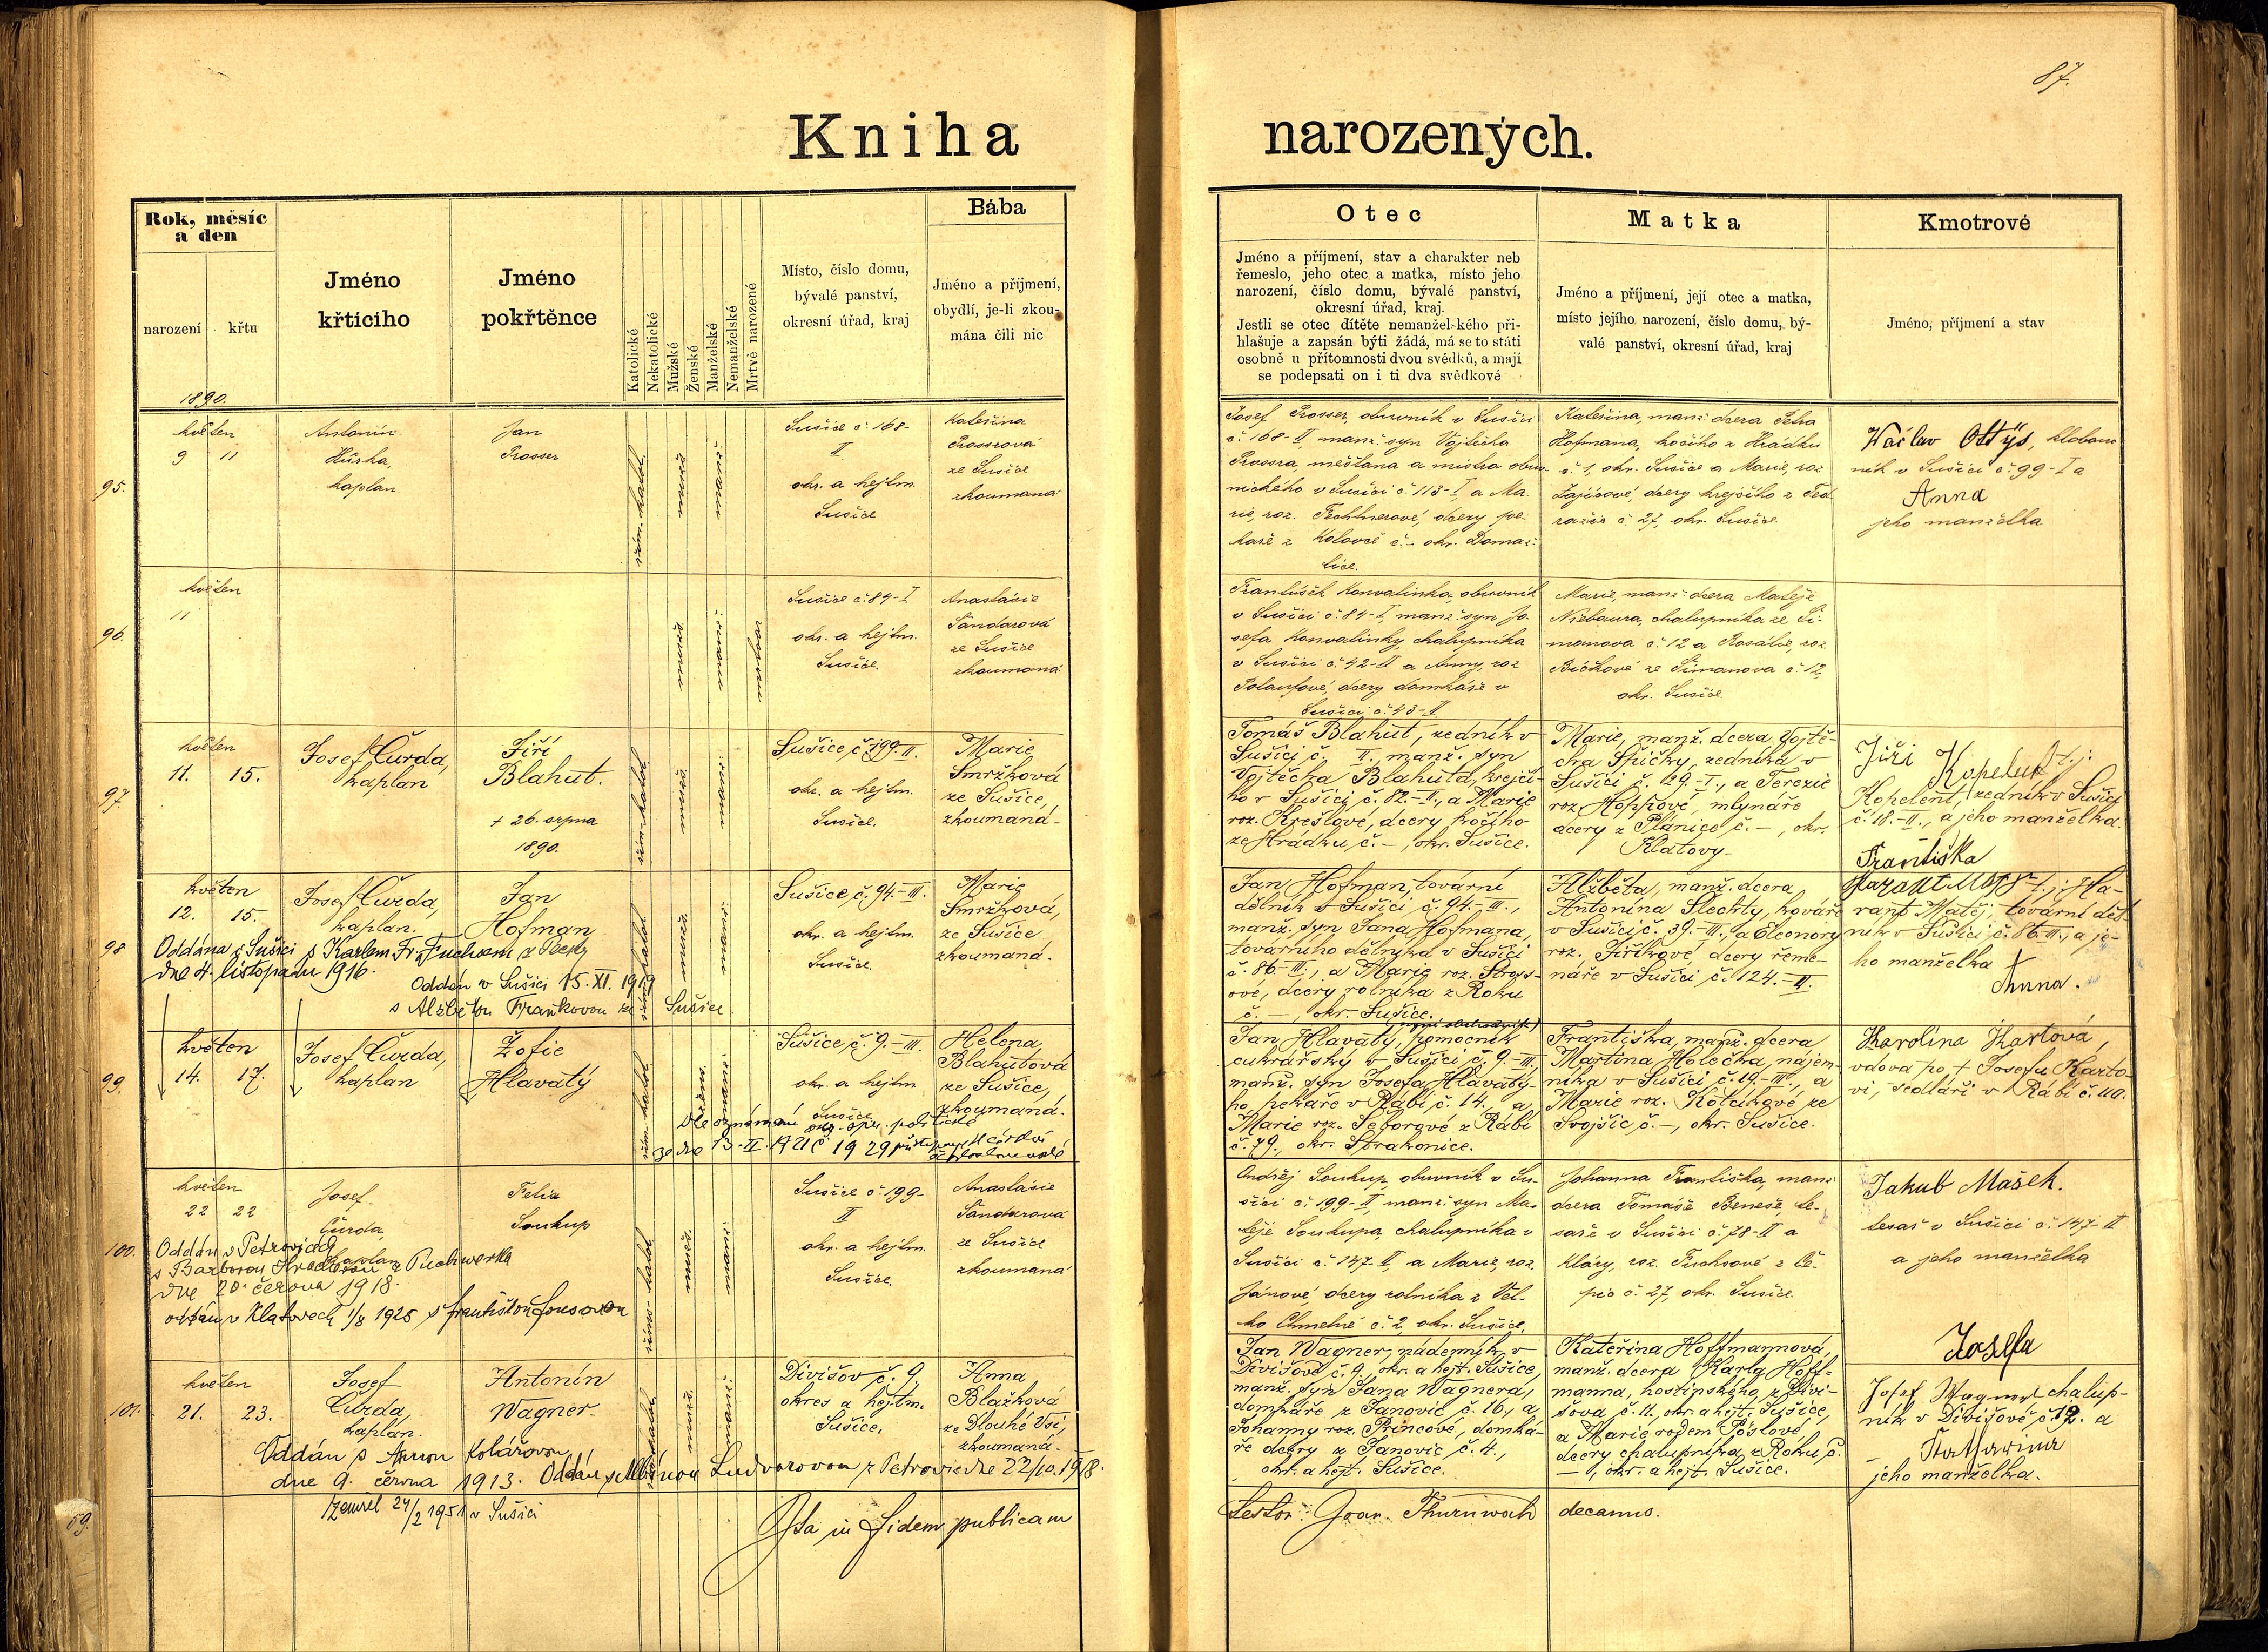 87.
Kniha narozených.
Rok, měsíc
a den
narození
křtu
1890.
Jméno
křticího
Jméno
pokřtěnce
Katolické
Nekatolické
Mužské
Ženské
Manželské
Nemanželské
Mrtvě narozené
Místo, číslo domu,
bývalé panství,
okresní úřad, kraj
Bába
Jméno a příjmení,
obydlí, je-li zkou-
mána čili nic
Otec
Jméno a příjmení, stav a charakter neb
řemeslo, jeho otec a matka, místo jeho
narození, číslo domu, bývalé panství,
okresní úřad, kraj.
Jestli se otec dítěte nemanželského při-
hlašuje a zapsán býti žádá, má se to státi
osobně u přítomnosti dvou svědků, a mají
se podepsati on i ti dva svědkové
Matka
Jméno a příjmení, její otec a matka,
místo jejího narození, číslo domu, bý-
valé panství, okresní úřad, kraj
Kmotrové
Jméno, příjmení a stav
95.
květen
9 11
Antonín
Hůrka,
kaplan.
Jan
Prosser
řím. katol.
muž.
manž.
Sušice č. 168-
II
okr. a hejtm.
Sušice
Kateřina
Prosserová
ze Sušice
zkoumaná
Josef Prosser, obuvník v Sušici
č. 168-II, manž. syn Vojtěcha
Prossra, měšťana a mistra obuv-
nického v Sušici č. 113-I a Ma-
rie, roz. dcery pe-
kaře z Koloveč č. - okr. Domaž-
lice.
Kateřina, manž. dcera Petra
Hofmana, kočího z Hrádku
č. 1, okr. Sušice a Marie, roz.
dcery krejčího z
č. 27, okr. Sušice.
Václav Ottýs, klobouč
ník v Sušici č. 99-I a
Anna
jeho manželka
96.
květen
11
muž.
manž.
Sušice č. 84-I
okr. a hejtm.
Sušice.
Anastásie
Šandarová
ze Sušice
zkoumaná
František Konvalinka, obuvník
v Sušici č. 84-I, manž. syn Jo-
sefa Konvalinky, chalupníka
v Sušici č. 42-II a Anny, roz.
dcery domkáře v
Sušici č. 43-II.
Marie, manž. dcera Matěje
Niebaura, chalupníka ze Ši-
manova č. 12 a Rosálie, roz.
ze Šimanova č. 12,
okr. Sušice
97.
květen
11. 15.
Josef Čurda,
kaplan
Jiří
Blahut.
+ 26. srpna
1890.
řím. katol.
muž.
manž.
Sušice, č. 199-II.
okr. a hejtm.
Sušice.
Marie
Smržková
ze Sušice,
zkoumaná-
Tomáš Blahut, zedník v
Sušici č. II., manž. syn
Vojtěcha Blahuta, krejčí-
ho v Sušici č. 82.-II., a Marie
roz. Krešlové, dcery kočího
ze Hrádku č. -, okr. Sušice.
Marie, manž. dcera Vojtě-
cha Špičky, zedníka v
Sušici č. 129.-I., a Terezie
roz. Hoppové, mlynáře
dcery z Plánice č. -, okr.
Klatovy-
Jiží Kopelent t.j:
Kopelent, zedník v Sušici
č. 18.-II., a jeho manželka.
Františka
98
květen
12. 15.
Josef Čurda,
kaplan.
Jan
Hofman
Oddána v Sušici s Karlem Fr. Fuchsem z
dne 4. listopadu 1916.
Oddán v Sušici 15. XI. 1919
s Alžbětou Fraňkovou ze Sušice
řím. katol.
muž.
manž.
Sušice, č. 94.-III.
okr. a hejtm.
Sušice.
Marie
Smržková,
ze Sušice
zkoumaná.
Jan Hofman, tovární
dělník v Sušici, č. 94.-III.,
manž. syn Jana Hofmana,
továrního dělníka v Sušici
č. 86.-III., a Marie roz.
ové, dcery rolníka z Roku
č. -, okr. Sušice.
Alžběta, manž. dcera
Antonína Šlechty, kováře
v Sušici č. 39.-III., a Eleonory
roz. Jiříkové, dcery řeme-
náře v Sušici č. 124.-II.
Harant Matěj t.j: Ha-
rant Matěj, tovární děl-
ník v Sušici č. 86.-III., a je-
ho manželka
Anna.
99.
květen
14. 17.
Josef Čurda,
kaplan
Žofie
Hlavatý
řím. katol.
žen.
manž.
Sušice, č. 9.-III.
okr. a hejtm.
Sušice
Helena
Blahutová
ze Sušice,
zkoumaná.
Dle oznámení okr. správy politické
ze dne 13-II. 1921 č. 1929
Jan Hlavatý, pomocník
cukrářský v Sušici č. 9.-III.,
manž. syn Josefa Hlavaté-
ho, pekaře v Rábí č. 14., a
Marie roz. Šeborové z Rábí
č. 79., okr. Strakonice.
Františka, manž. dcera
Martina Holečka, nájem-
níka v Sušici č. 14.-III., a
Marie roz. Kotektové ze
Svojšic, č. -, okr. Sušice.
Karolína Kartová,
vdova po + Josefu Karto-
vi, sedláři v Rábí č. 110.
100.
květen
22 22
Josef
Čurda,
kaplan
Felix
Soukup
Oddán v Petrovicích
s Barborou z Puchwerka
dne 20. června 1918.
oddán v Klatovech 1/8 1925 s Františkou Sousovou
řím. katol.
muž.
manž.
Sušice č. 199-
II
okr. a hejtm.
Sušice.
Anastásie
Šandarová
ze Sušice
zkoumaná
Ondřej Soukup, obuvník v Su-
šici č. 199-II, manž. syn Ma-
těje Soukupa, chalupníka v
Sušici č. 147-II, a Marie, roz.
Jánové, dcery rolníka z Vel-
ko Chmelné č. 2, okr. Sušice.
Johanna Františka, manž.
dcera Tomáše Beneše, te-
saře v Sušici č. 78-II a
Kláry, roz. Fuchsové z Če-
pic č. 27, okr. Sušice.
Jakub Mašek.
tesař v Sušici č. 147-II
a jeho manželka
Josefa
101.
květen
21. 23.
Josef
Čurda,
kaplan.
Antonín
Wagner-
Oddán s Annou Kolářovou
dne 9. června 1913. Oddán s Albínou Ludvarovou z Petrovic dne 22/10. 1918.
Zemřel 24/2 1951 v Sušici
muž.
manž.
Divišov, č. 9.
okres a hejtm.
Sušice.
Anna
Blažková
ze Dlouhé Vsi,
zkoumaná-
Jan Wagner, nádenník v
Divišově č. 9., okr. a hejt. Sušice,
manž. syn Jana Wagnera,
domkáře z Janovic č. 16., a
Johanny roz. Princové, domká-
ře dcery z Janovic č. 4.,
okr. a hejt. Sušice.
Kateřina Hoffmannová,
manž. dcera Karla Hoff-
manna, hostinského z Divi-
šova č. 11., okr. a hejt. Sušice,
a Marie rodem Pöslové,
dcery chalupníka z Roku, č.
-, okr. a hejt. Sušice.
Josef Wagner chalup-
ník v Divišově č. 12. a
Katharina
jeho manželka.
69.
Ita in fidem publicam
testor: Joan. Thurnwald decanus.